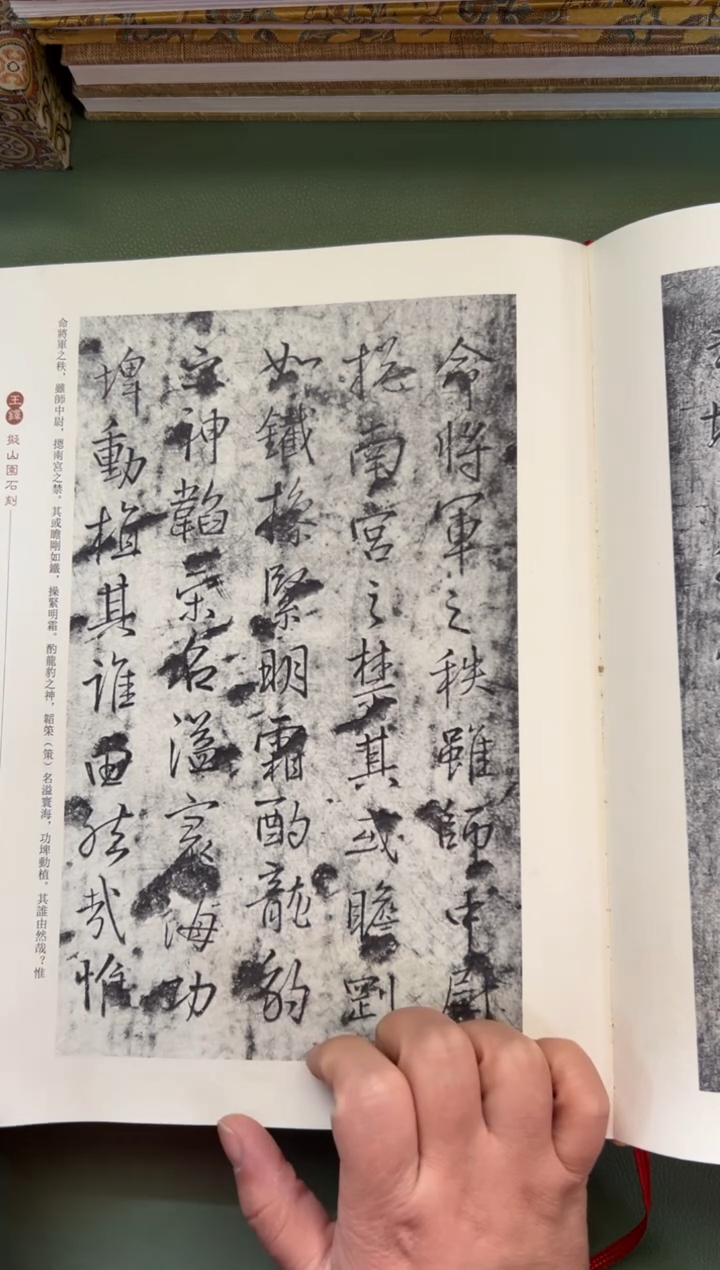 命將軍之秩雖師中尉
摠南宮之禁其或瞻剛
如鐵操緊明霜酌龍豹
之神韜筞名溢寰海功
埤動植其誰由然哉惟
命將軍之秩，雖師中尉，摠南宮之禁，其或瞻剛如鐵，操緊明霜。酌龍豹之神，韜筞（策）名溢寰海，功埤動植。其誰由然哉？惟
王鐸
擬山園石刻